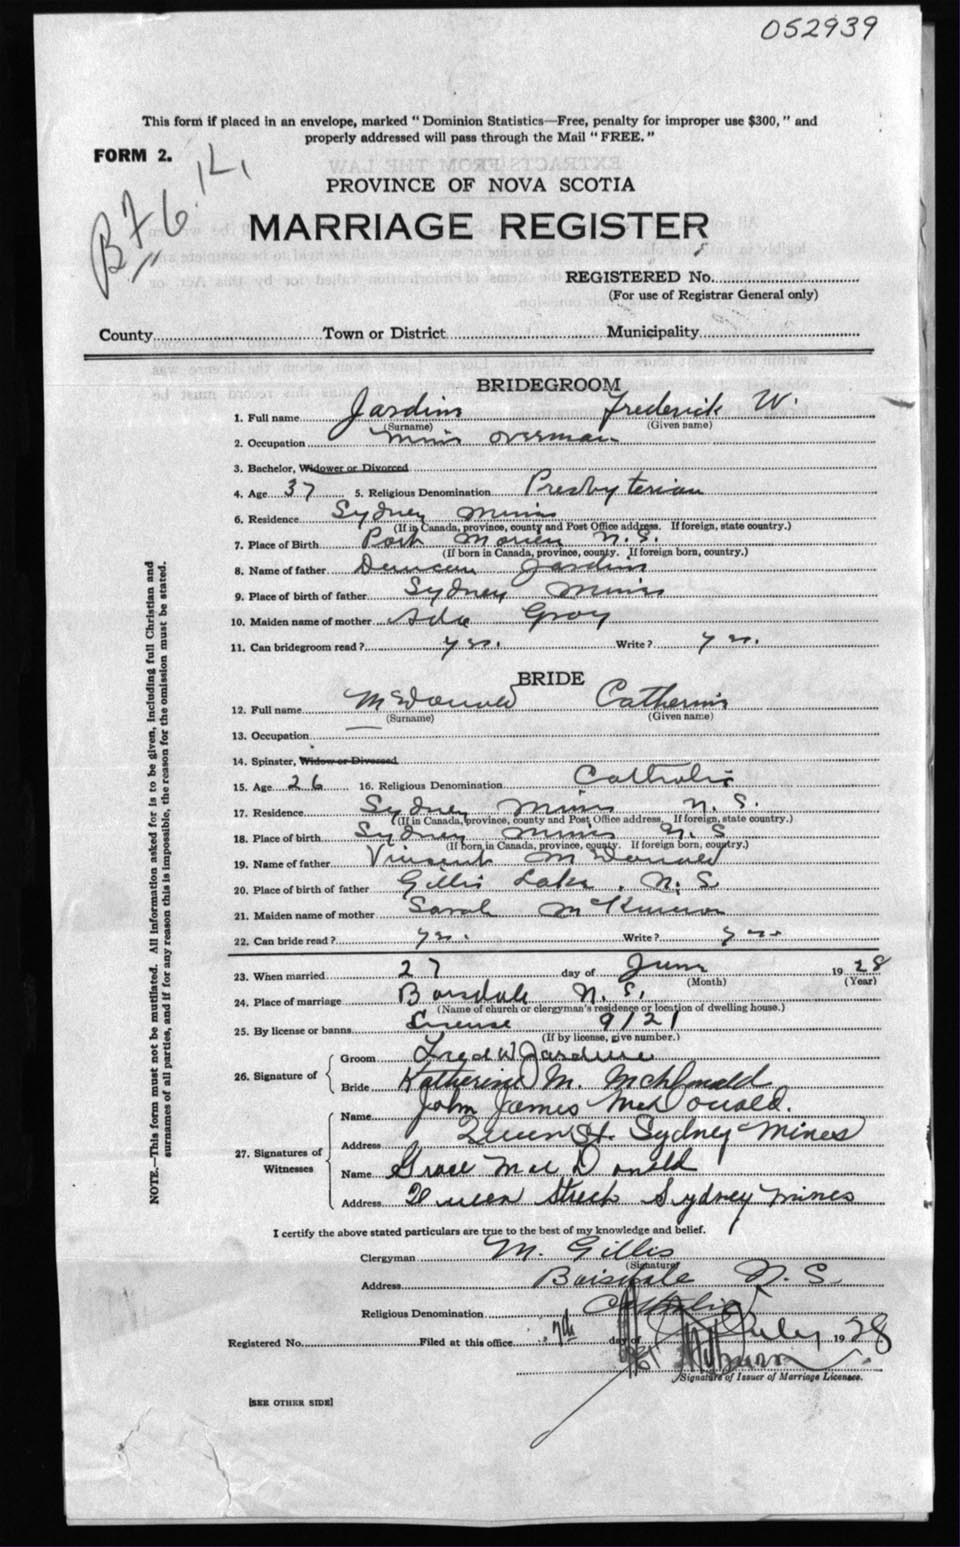 052939
This form if placed in an envelope, marked "Dominion Statistics—Free, penalty for improper use $300," and
properly addressed will pass through the Mail "FREE."
FORM 2.
B76
PROVINCE OF NOVA SCOTIA
MARRIAGE REGISTER
REGISTERED No.
(For use of Registrar General only)
County Town or District Municipality
BRIDEGROOM
1. Full name Jardine Frederick W.
(Surname) (Given name)
2. Occupation Mine overman
3. Bachelor, Widower or Divorced
4. Age 37 5. Religious Denomination Presbyterian
6. Residence Sydney Mines
(If in Canada, province, county and Post Office address. If foreign, state country.)
7. Place of Birth Port Morien N.S.
(If born in Canada, province, county. If foreign born, country.)
8. Name of father Duncan Jardine
9. Place of birth of father Sydney Mines
10. Maiden name of mother Ada Gray
11. Can bridegroom read? yes. Write? yes.
BRIDE
12. Full name McDonald Catherine
(Surname) (Given name)
13. Occupation
14. Spinster, Widow or Divorced
15. Age 26 16. Religious Denomination Catholic
17. Residence Sydney Mines N.S.
(If in Canada, province, county and Post Office address. If foreign, state country.)
18. Place of birth Sydney Mines N.S
(If born in Canada, province, county. If foreign born, country.)
19. Name of father Vincent McDonald
20. Place of birth of father Gillis Lake. N.S
21. Maiden name of mother Sarah McKinnon
22. Can bride read? yes. Write? yes
23. When married 27 day of June 1928
(Month) (Year)
24. Place of marriage Boisdale N.S.
(Name of church or clergyman's residence or location of dwelling house.)
25. By license or banns License 9121
(If by license, give number.)
26. Signature of
Groom Fred W Jardine
Bride Katherine M. McDonald
27. Signatures of Witnesses
Name John James McDonald.
Address Queen St. Sydney Mines
Name Grace MacDonald
Address Queen Street Sydney Mines
I certify the above stated particulars are true to the best of my knowledge and belief.
Clergyman M. Gillis
(Signature)
Address Boisdale N.S
Religious Denomination Catholic
Registered No. Filed at this office 7th day of July 1928
Signature of Issuer of Marriage Licenses.
[SEE OTHER SIDE]
NOTE.—This form must not be mutilated. All information asked for is to be given, including full Christian and
surnames of all parties, and if for any reason this is impossible, the reason for the omission must be stated.